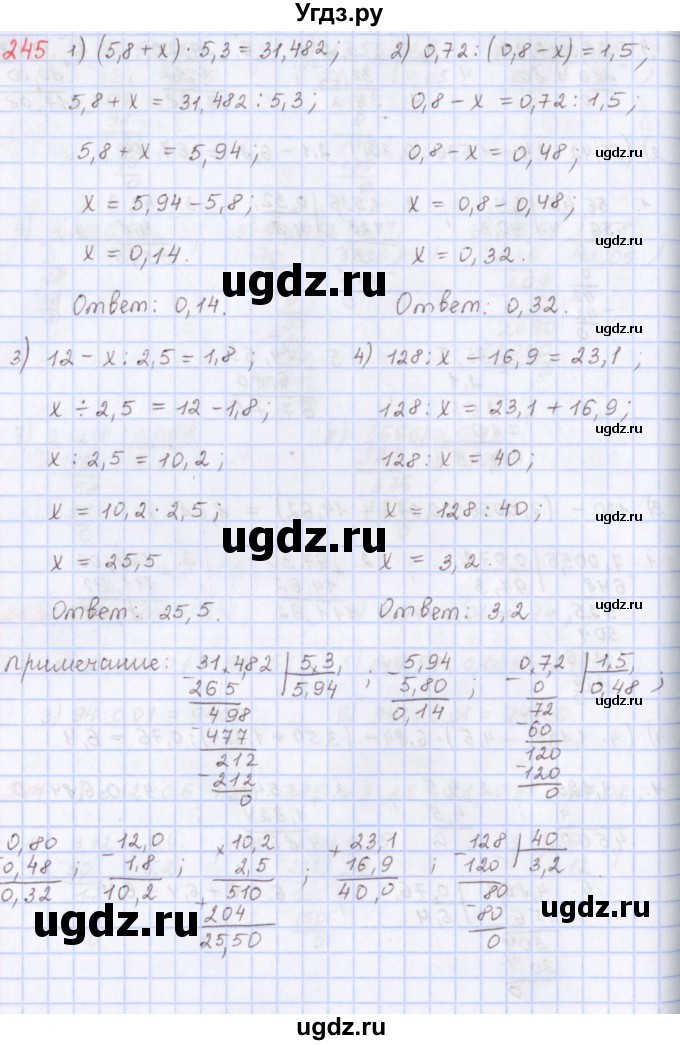 Угдз.ру
245 1) (5,8 + x) · 5,3 = 31,482; 2) 0,72 : (0,8 - x) = 1,5;
5,8 + x = 31,482 : 5,3; 0,8 - x = 0,72 : 1,5;
5,8 + x = 5,94; 0,8 - x = 0,48;
ugdz.ru
x = 5,94 - 5,8; x = 0,8 - 0,48;
x = 0,14. x = 0,32.
ugdz.ru ugdz.ru
Ответ: 0,14. Ответ: 0,32.
3) 12 - x : 2,5 = 1,8; 4) 128 : x - 16,9 = 23,1;
x ÷ 2,5 = 12 - 1,8; 128 : x = 23,1 + 16,9;
x : 2,5 = 10,2; 128 : x = 40;
x = 10,2 · 2,5; x = 128 : 40;
ugdz.ru ugdz.ru
x = 25,5 x = 3,2.
Ответ: 25,5. Ответ: 3,2
ugdz.ru
Примечание: 31,482 | 5,3 ; 5,94 ; 0,72 | 1,5
- 265 5,94 - 5,80 - 0 0,48 ;
498 0,14 72
- 477 - 60
212 120
- 212 - 120
0 0
ugdz.ru ugdz.ru
0,80 ; - 12,0 ; × 10,2 ; + 23,1 ; - 128 | 40
0,48 1,8 2,5 16,9 120 3,2
0,32 10,2 510 40,0 80
+ 204 - 80
25,50 0
ugdz.ru ugdz.ru ugdz.ru
ugdz.ru